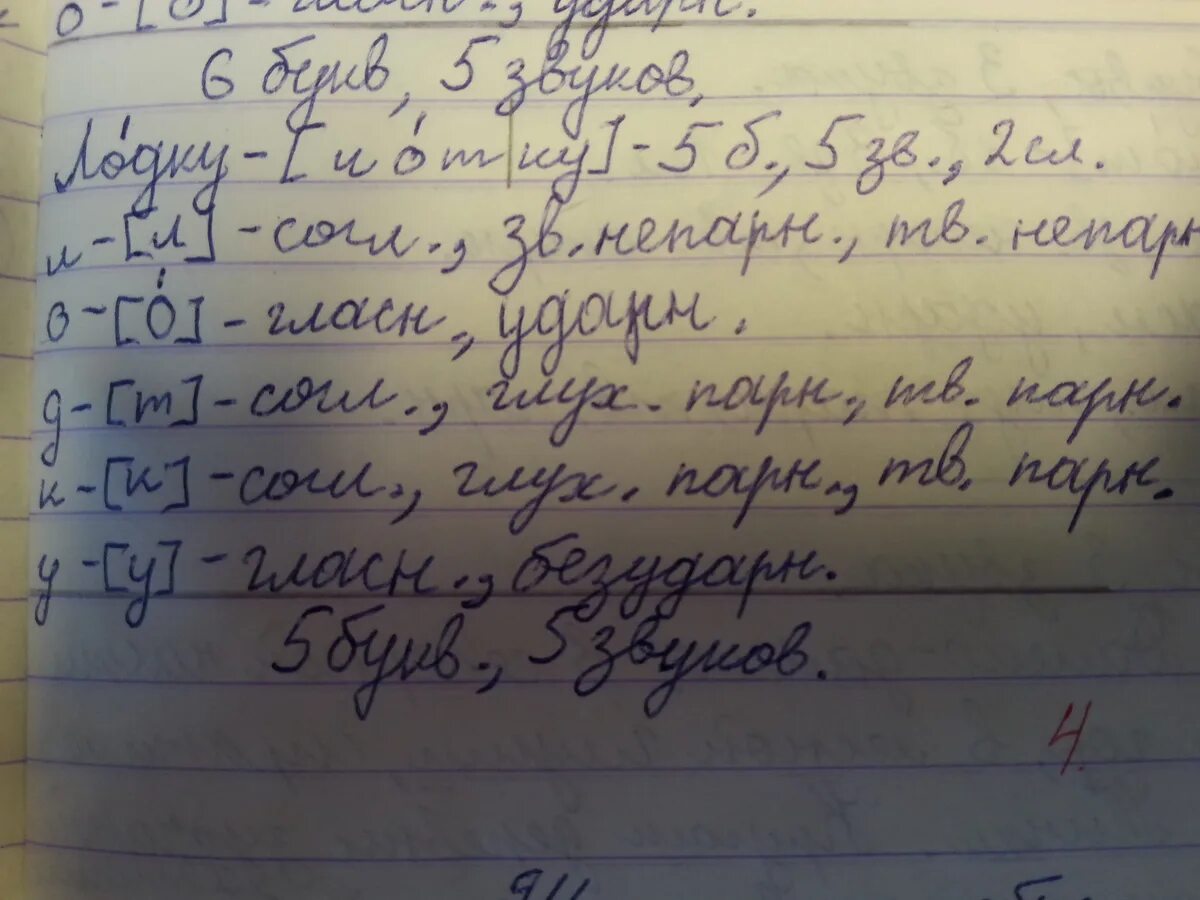 о-[о́]-гласн., ударн.
6 букв, 5 звуков,
Ло́дку-[л о́ т|ку]-5 б., 5 зв., 2 сл.
л-[л]-согл., зв. непарн., тв. непарн
о-[о́]-гласн., ударн.
д-[т]-согл., глух. парн., тв. парн.
к-[к]-согл., глух. парн., тв. парн.
у-[у]-гласн., безударн.
5 букв., 5 звуков.
4.